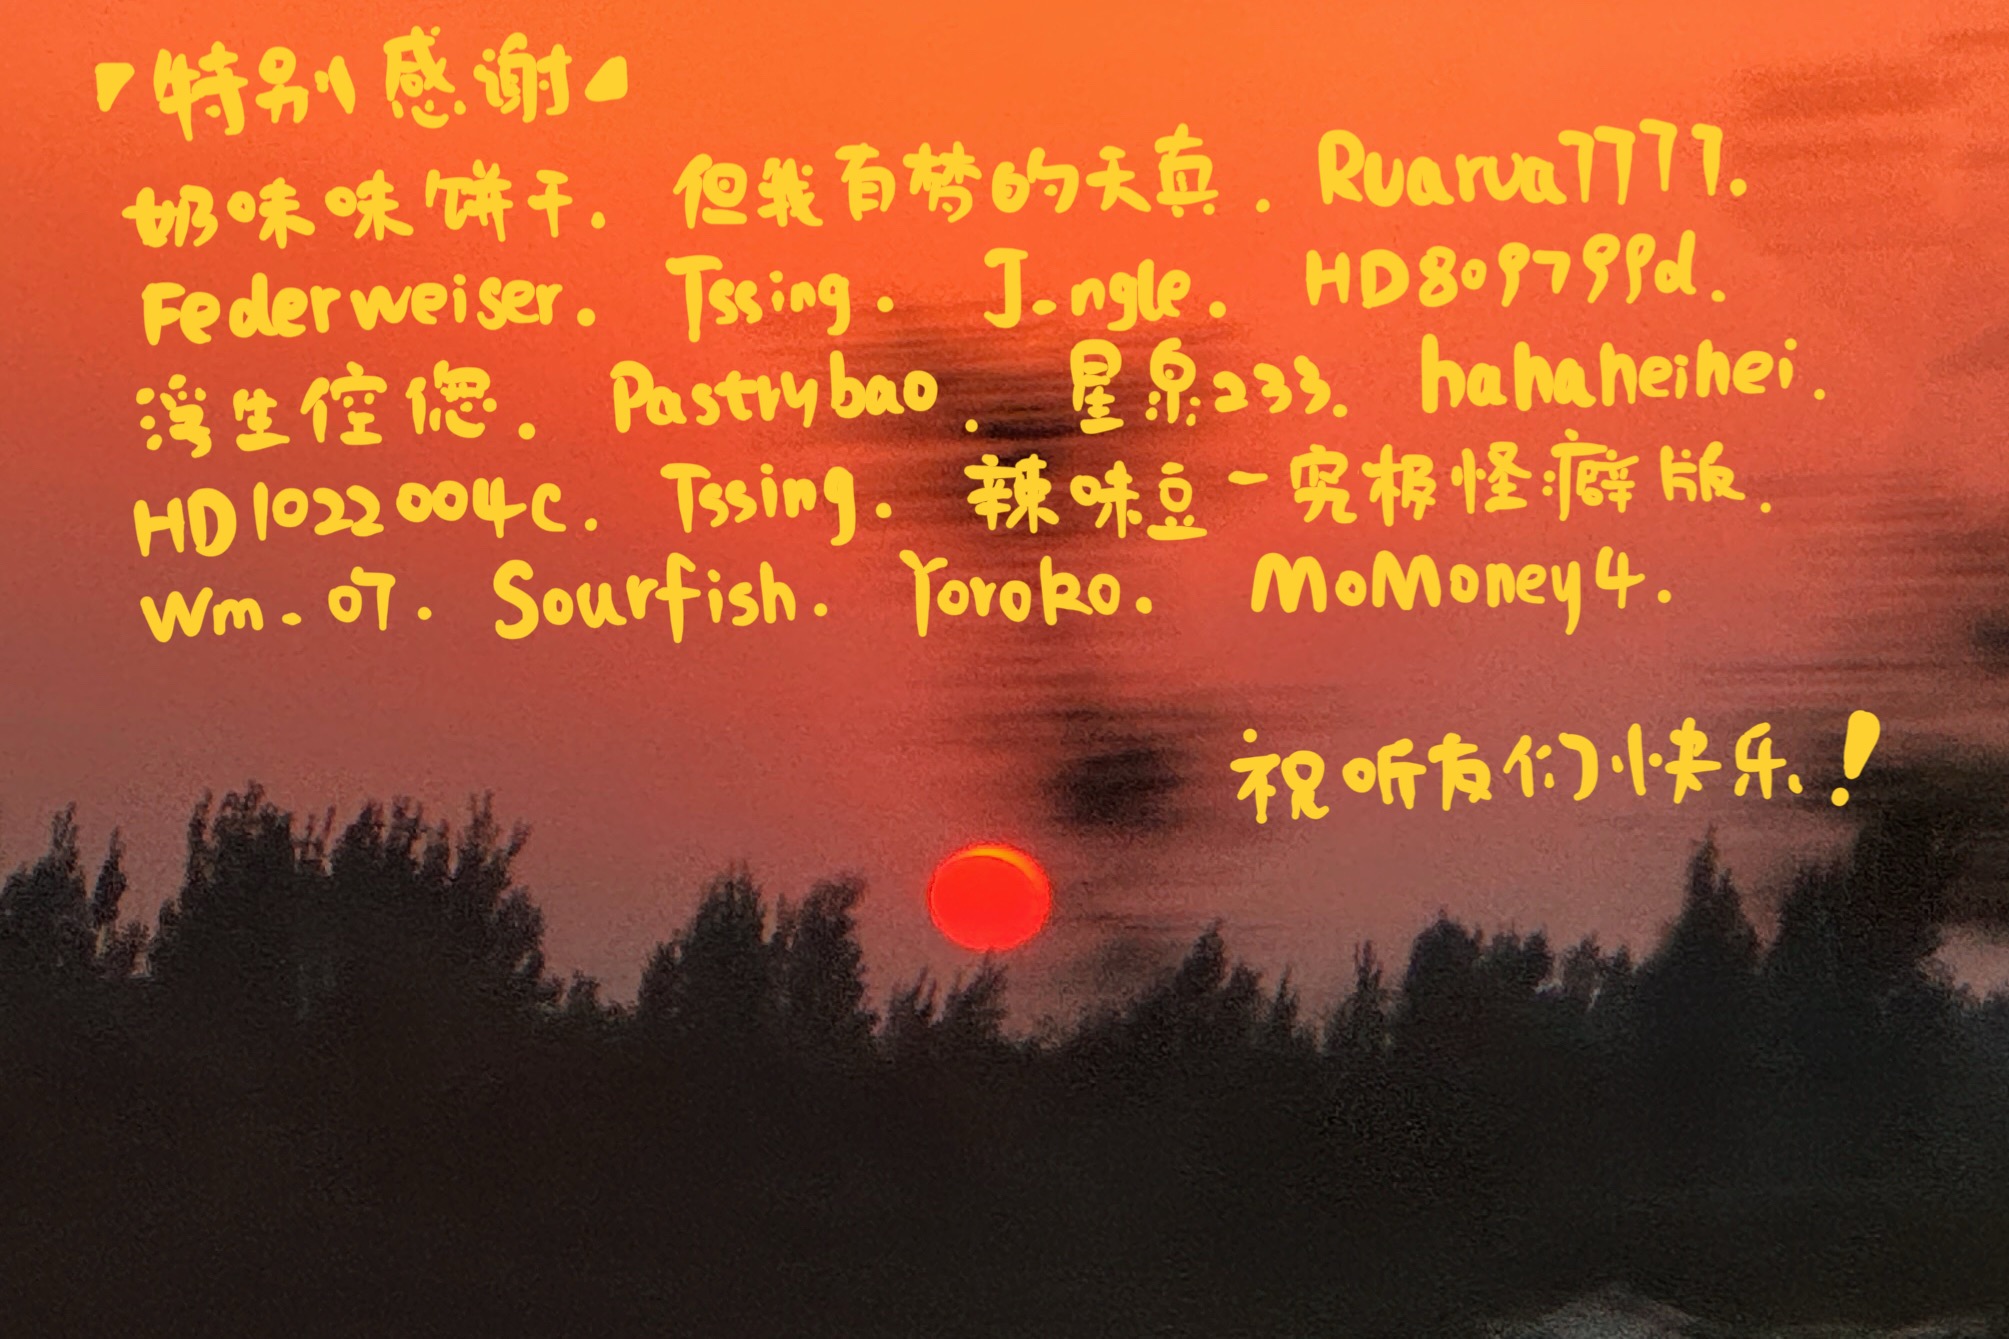 特别感谢
奶味味饼干. 但我有梦的天真. Ruarua7777.
Federweiser. Tssing. J_ngle. HD809799d.
浮生倥偬. Pastrybao. 星泉233. hahaheihei.
HD1022004c. Tssing. 辣味豆-究极怪癖版.
Wm_07. Sourfish. Yoroko. MoMoney4.
祝听友们快乐!